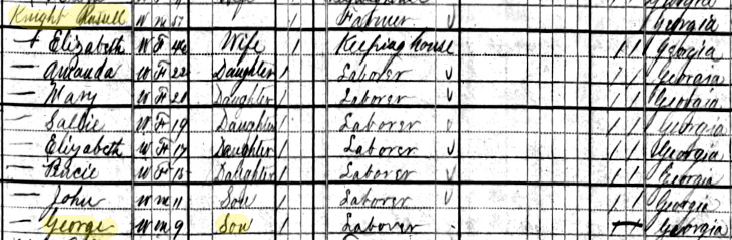 Knight Russell W M 57 1 Farmer Georgia
+ Elizabeth W F Wife 1 Keeping house 1 1 Georgia
— Amanda W F 22 Daughter 1 Laborer 1 1 Georgia
— Mary W F 21 Daughter 1 Laborer 1 1 Georgia
— Sallie W F 19 Daughter 1 Laborer 1 1 Georgia
— Elizabeth W F 17 Daughter 1 Laborer 1 1 Georgia
— W F Daughter 1 Laborer 1 1 Georgia
— John W M 11 Son 1 Laborer 1 1 Georgia
— George W M 9 Son 1 Laborer Georgia